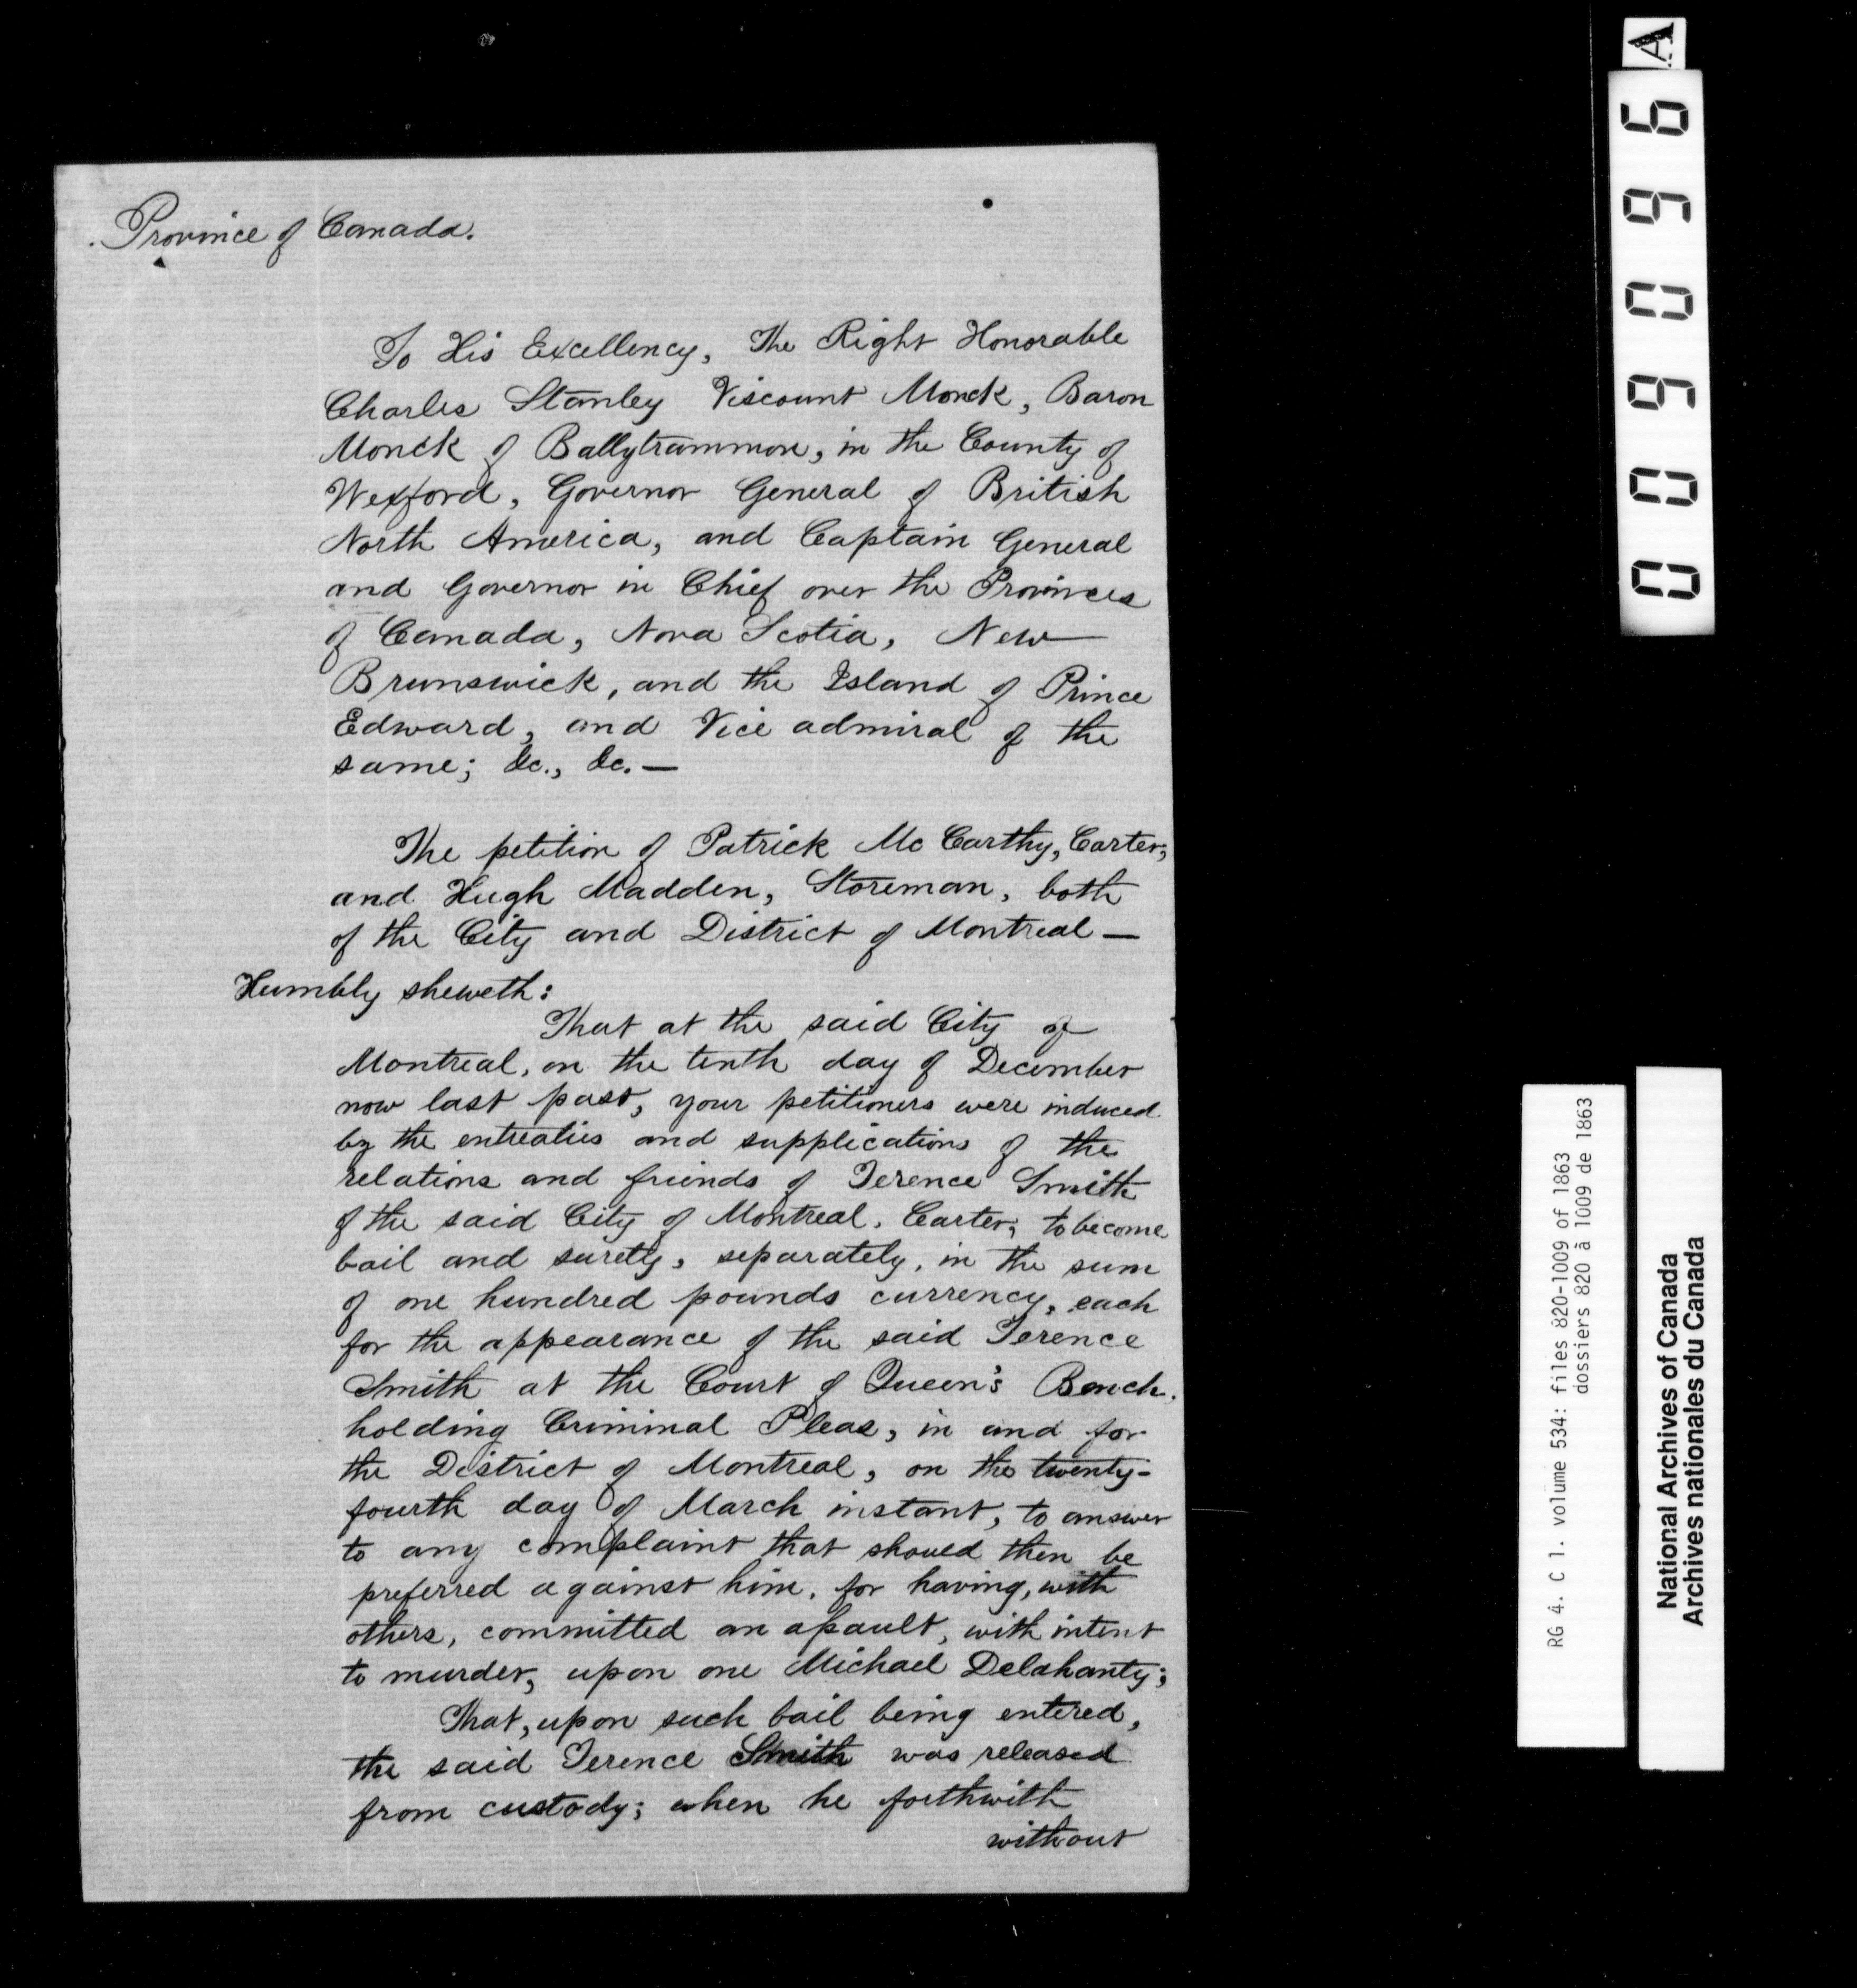 Province of Canada.
To His Excellency, The Right Honorable
Charles Stanley Viscount Monck, Baron
Monck of Ballytrammon, in the County of
Wexford, Governor General of British
North America, and Captain General
and Governor in Chief over the Provinces
of Canada, Nova Scotia, New
Brunswick, and the Island of Prince
Edward, and Vice admiral of the
same; &c., &c. —
The petition of Patrick Mc Carthy, Carter,
and Hugh Madden, Storeman, both
of the City and District of Montreal —
Humbly sheweth:
That at the said City of
Montreal, on the tenth day of December
now last past, your petitioners were induced
by the entreaties and supplications of the
relations and friends of Terence Smith
of the said City of Montreal, Carter, to become
bail and surety, separately, in the sum
of one hundred pounds currency, each
for the appearance of the said Terence
Smith at the Court of Queen's Bench,
holding Criminal Pleas, in and for
the District of Montreal, on the twenty-
fourth day of March instant, to answer
to any complaint that should then be
preferred against him, for having, with
others, committed an assault, with intent
to murder, upon one Michael Delahanty;
That, upon such bail being entered,
the said Terence Smith was released
from custody; when he forthwith
without
009096 A
RG 4. C 1. volume 534: files 820-1009 of 1863
dossiers 820 à 1009 de 1863
National Archives of Canada
Archives nationales du Canada